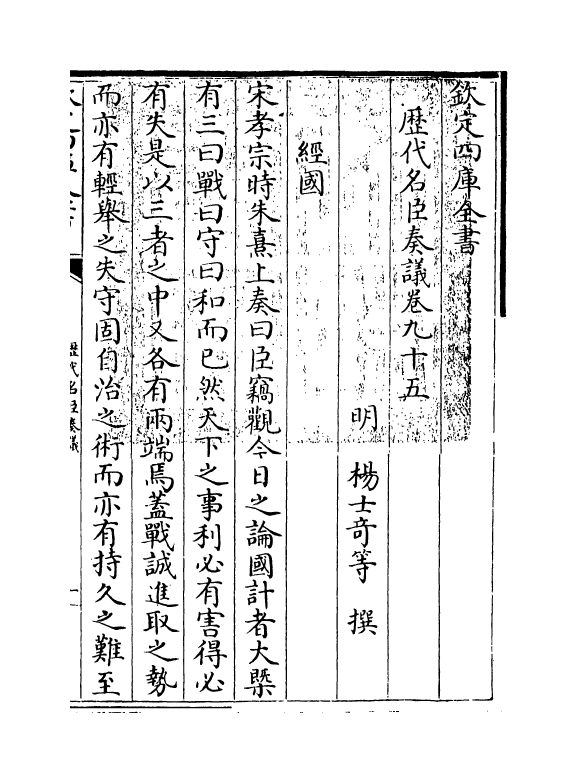 欽定四庫全書
歷代名臣奏議卷九十五
明　楊士奇等　撰
經國
宋孝宗時朱熹上奏曰臣竊觀今日之論國計者大槩
有三曰戰曰守曰和而已然天下之事利必有害得必
有失是以三者之中又各有兩端焉蓋戰誠進取之勢
而亦有輕舉之失守固自治之術而亦有持久之難至
歷代名臣奏議
一